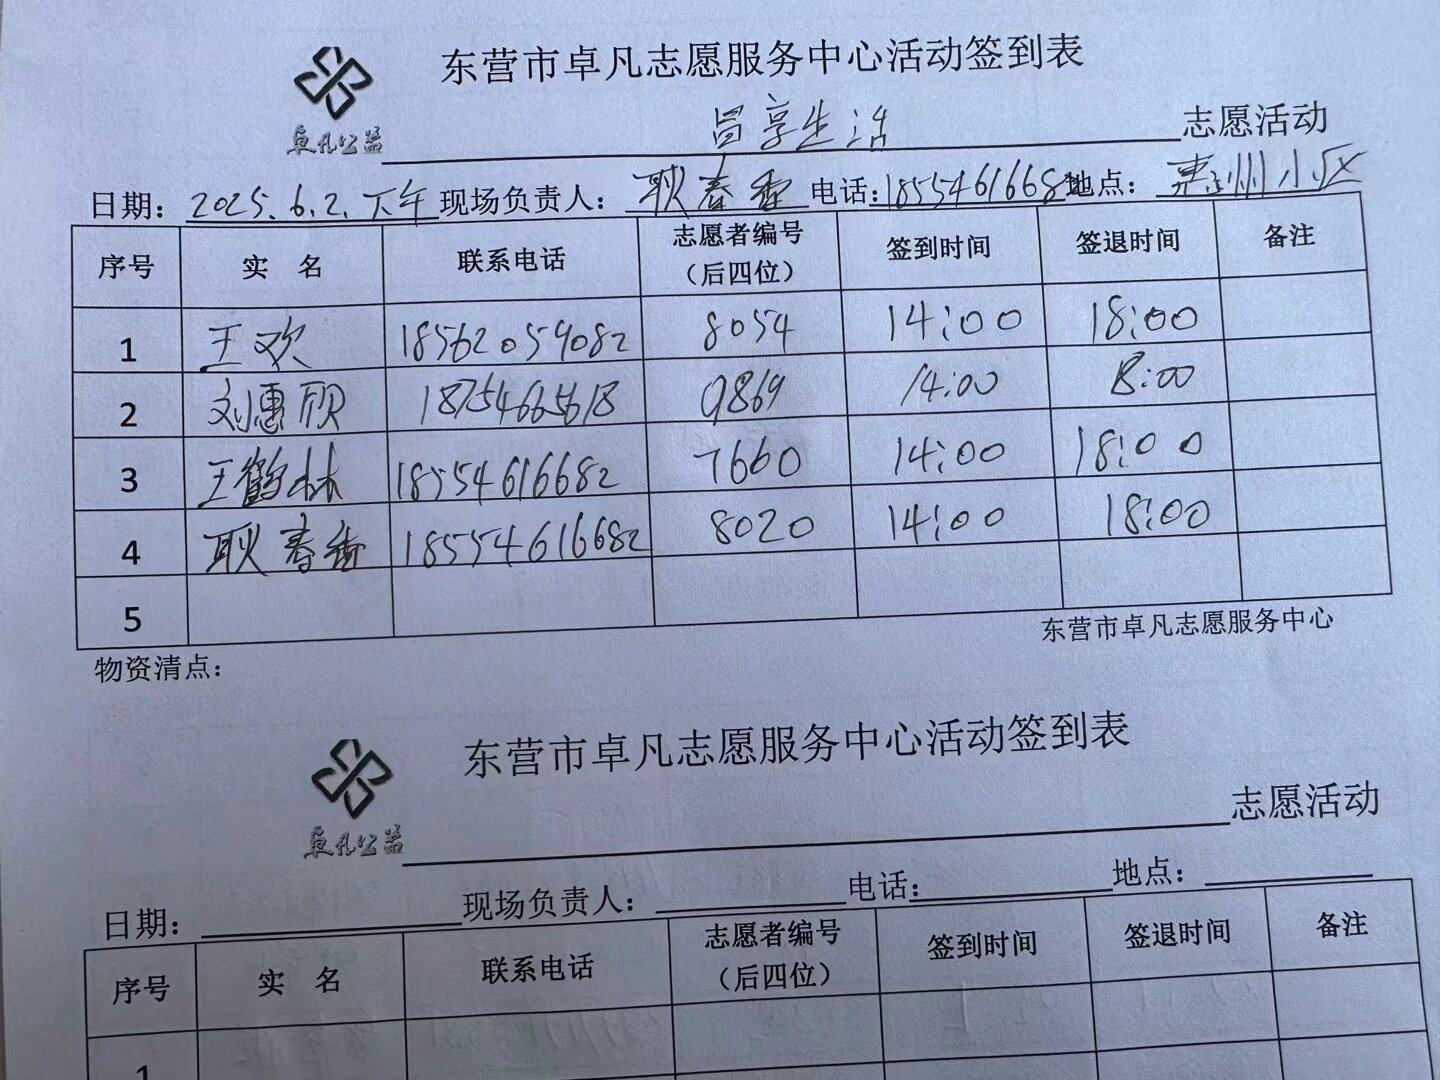 东营市卓凡志愿服务中心活动签到表
卓凡公益
享生活 志愿活动
日期：2025.6.2.下午 现场负责人：耿春香 电话：18554616682 地点：惠州小区
序号 实 名 联系电话 志愿者编号（后四位） 签到时间 签退时间 备注
1 王欢 18562059082 8054 14:00 18:00
2 刘惠欣 18754665618 9869 14:00 18:00
3 王鹤林 18554616682 7660 14:00 18:00
4 耿春香 18554616682 8020 14:00 18:00
5
东营市卓凡志愿服务中心
物资清点：
东营市卓凡志愿服务中心活动签到表
卓凡公益
志愿活动
日期： 现场负责人： 电话： 地点：
序号 实 名 联系电话 志愿者编号（后四位） 签到时间 签退时间 备注
1